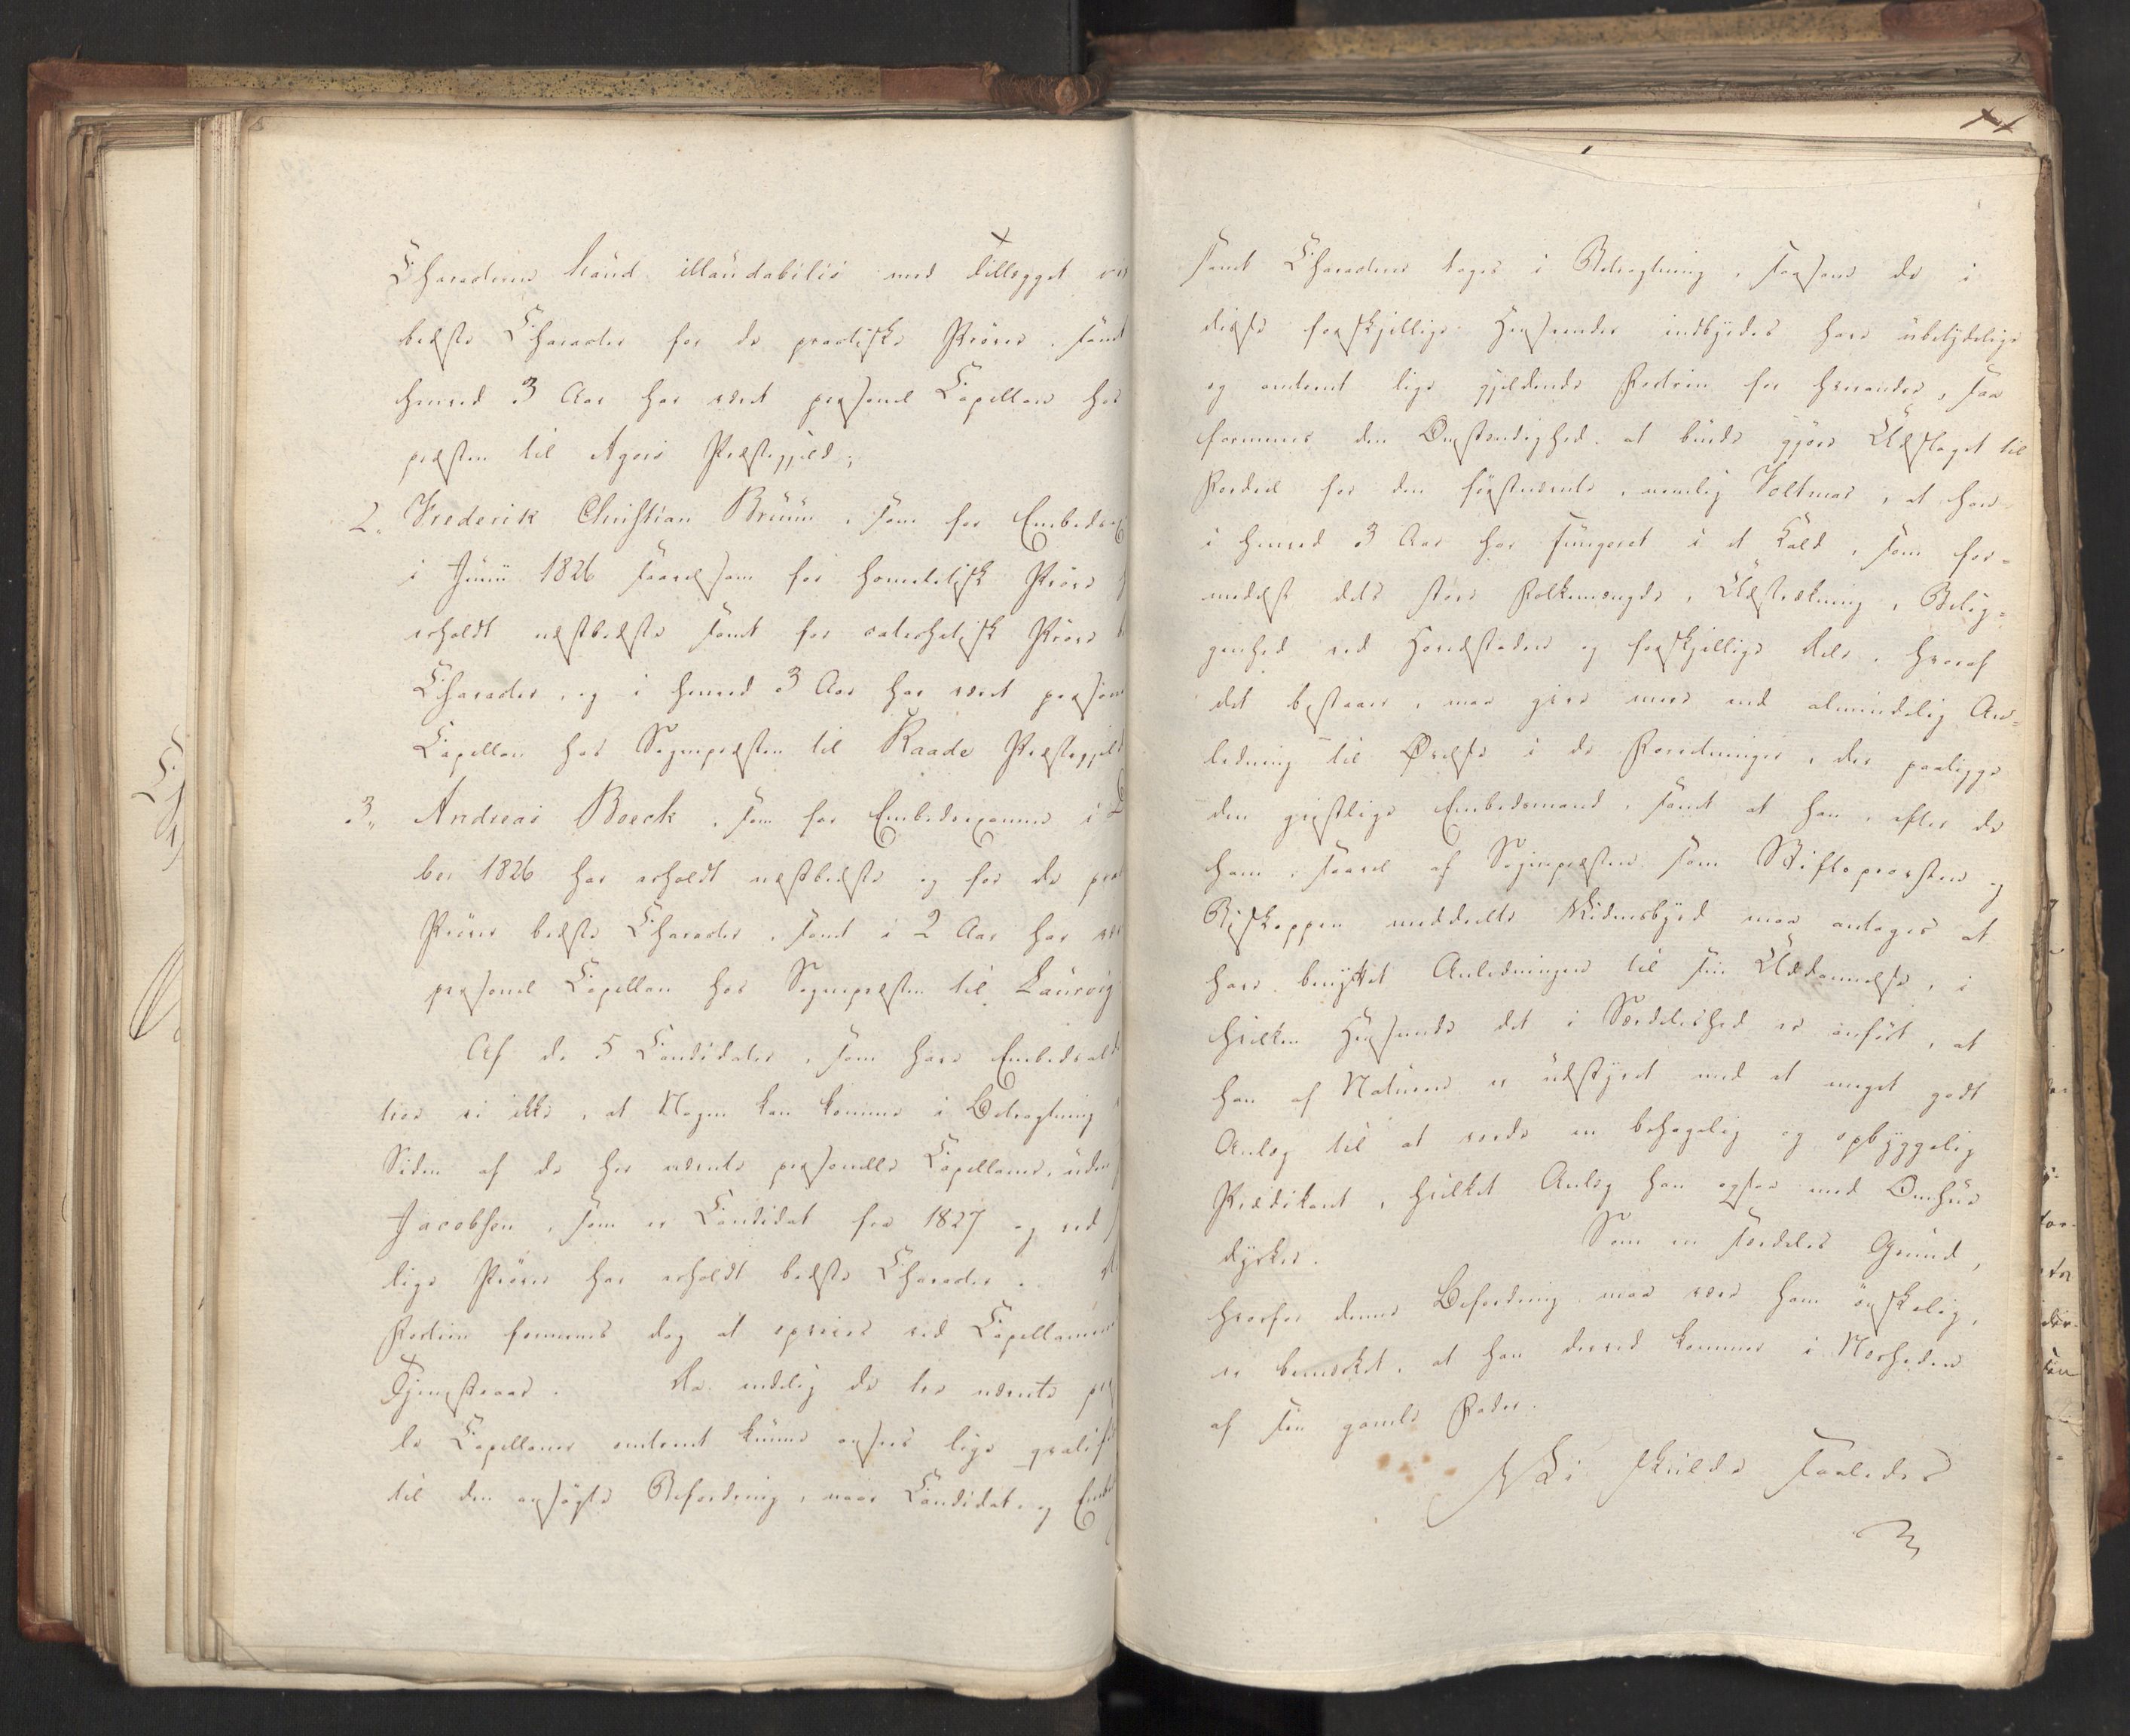 Characteren laud illaudabilis med Tillægget
bedste Character for de practiske Prøver, samt
henved 3 Aar har været personel Capellan hos
præsten til Agers Præstegjeld;
2. Frederik Christian Bruun, som for Embeds
i Junii 1826 saavelsom for homiletisk Prøve
erholdt næstbedste samt for catechetisk Prøve
Character, og i henved 3 Aar har været person
Capellan hos Sognepræsten til Raade Præstegjeld
3. Andreas Boeck, som for Embedsexamen i
ber 1826 har erholdt næstbedste og for de prac
Prøver bedste Character, samt i 2 Aar har vær
personel Capellan hos Sognepræsten til Laurvig
Af de 5 Candidater, som have Embedsalt
troe vi ikke, at Nogen kan komme i Betragtning
Siden af de her nævnte personelle Capellaner, uden
Jacobsen, som er Candidat fra 1827 og ved
lige Prøver har erholdt bedste Character.
Fortrin formenes dog at opveies ved Capellanernes
Tjenesteaar. Da endelig de tre nævnte per
le Capellaner omtrent kunne ansees lige qvalifi
til den ansøgte Befordring, naar Candidat- og Emb
samt Characteren tages i Betragtning, saasom de i
disse forskjellige Henseender indbyrdes have ubetydelige
og omtrent lige gjeldende Fortrin for hverandre, saa
formenes den Omstændighed at burde gjøre Udslaget til
Fordeel for den førstnævnte, nemlig Voltmar, at han
i henved 3 Aar har fungeret i et Kald, som for-
medelst dets store Folkemængde, Udstrækning, Belig-
genhed ved Hovedstaden og forskjellige Dele, hvoraf
det bestaaer, maa give mere end almindelig An-
ledning til Øvelse i de Forretninger, der paaligge
den geistlige Embedsmand, samt at han, efter de
ham, saavel af Sognepræsten som Stiftsprovsten og
Biskoppen meddeelte Vidnesbyrd maa antages at
have benyttet Anledningen til sin Uddannelse, i
hvilken Henseende det i Særdeleshed er anført, at
han af Naturen er udstyret med et meget godt
Anlæg til at vorde en behagelig og opbyggelig
Prædikant, hvilket Anlæg han ogsaa med Omhue
dyrker. Som en særdeles Grund,
hvorfor denne Befordring maa være ham ønskelig,
er bemærket, at han derved kommer i Nærheden
af sin gamle Fader.
Vi skulde saaledes